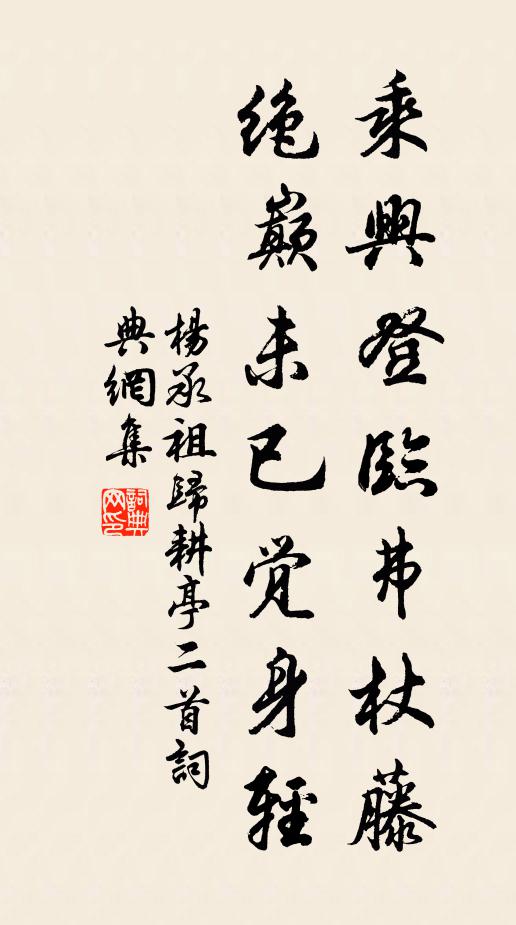 乘興登臨弗杖藤
絶巔未已觉身輕
楊承祖歸耕亭二首詞
典網集
詞典
网印